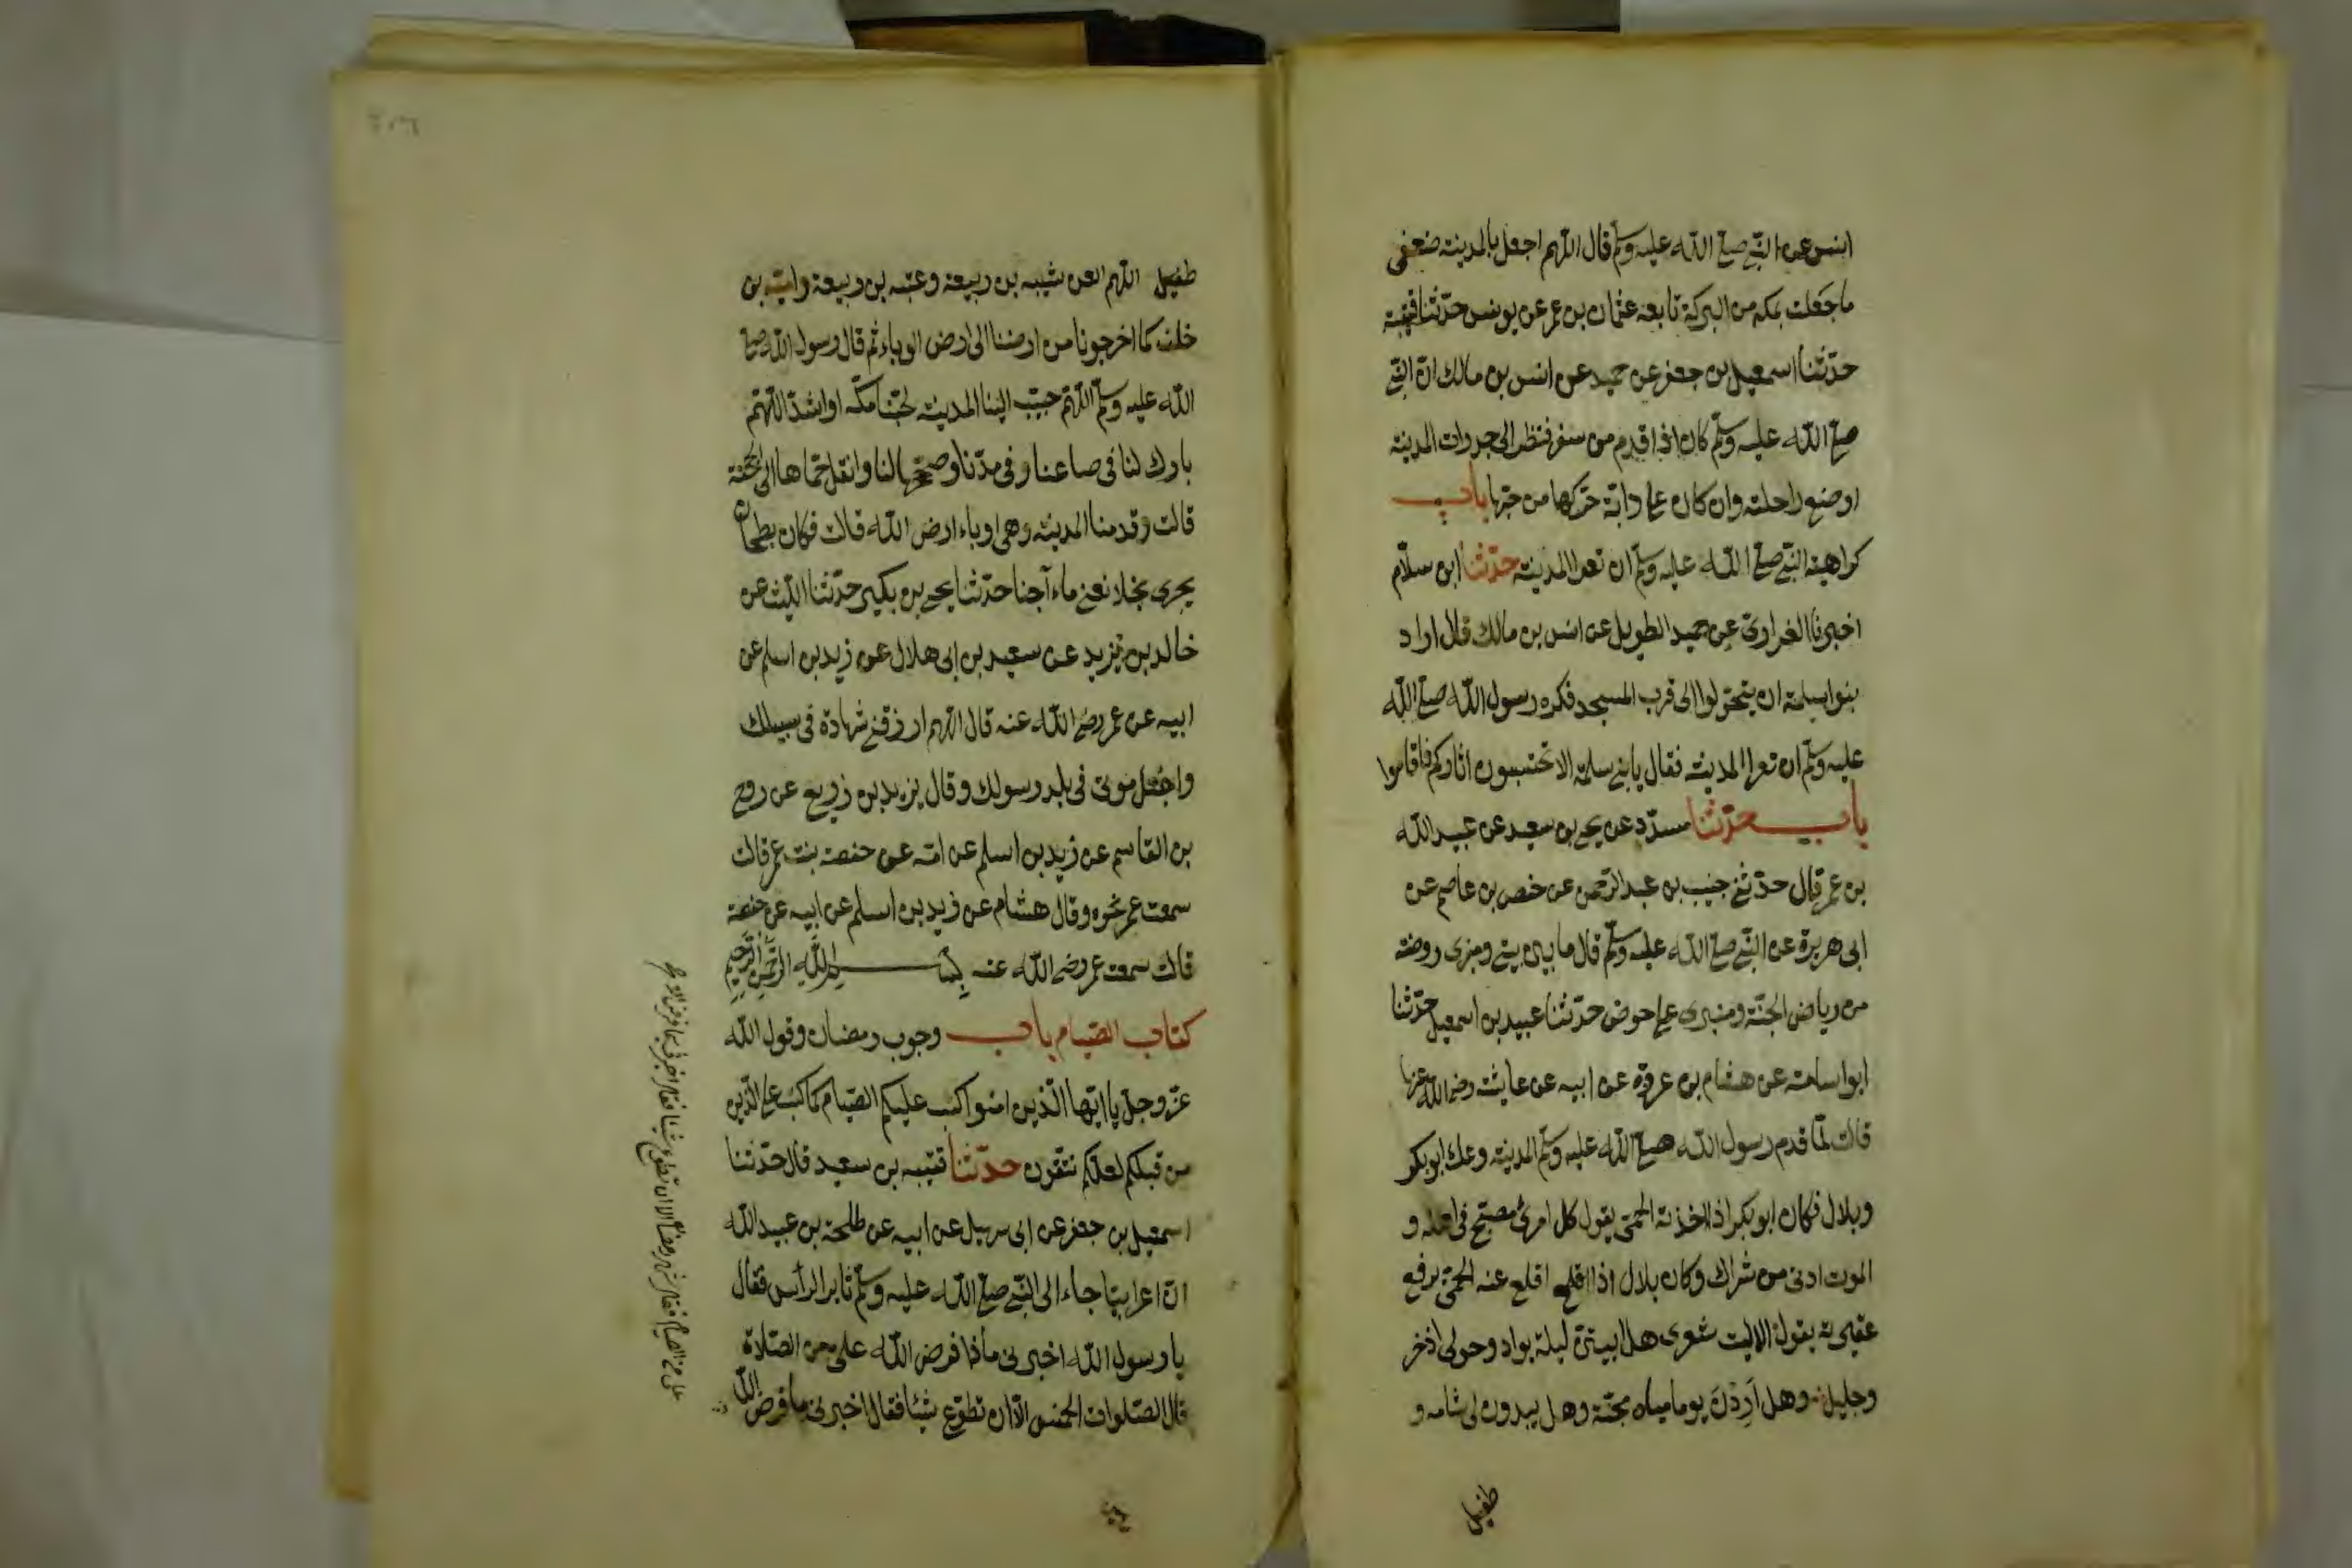 انس عن النبي صلى الله عليه وسلم قال اللهم اجعل بالمدينة ضعفي
ما جعلت بمكه من البركة تابعه عثمان بن عمر عن يونس حدّثنا قتيبة
حدّثنا اسمعيل بن جعفر عن حميد عن انس بن مالك انّ النبي
صلى الله عليه وسلم كان اذا قدم من سفر فنظر الى جدرات المدينة
اوضع راحلته وان كان على دابّة حرّكها من حبّها باب
كراهية النبي صلى الله عليه وسلم ان تعرا المدينة حدّثنا ابن سلّام
اخبرنا الفزاري عن حميد الطويل عن انس بن مالك قال اراد
بنوا سلمة ان يتحوّلوا الى قرب المسجد فكره رسول الله صلى الله
عليه وسلم ان تعرا المدينة فقال يا بني سلمة الا تحتسبون اثاركم فاقاموا
باب حدّثنا مسدّد عن يحيى بن سعيد عن عبيد الله
بن عمر قال حدّثني خبيب بن عبد الرحمن عن حفص بن عاصم عن
ابي هريرة عن النبي صلى الله عليه وسلم قال ما بين بيتي ومنبري روضة
من رياض الجنّة ومنبري على حوض حدّثنا عبيد بن اسمعيل حدّثنا
ابو اسامة عن هشام بن عروة عن ابيه عن عايشة رضي الله عنها
قالت لمّا قدم رسول الله صلى الله عليه وسلم المدينة وعك ابو بكر
وبلال فكان ابو بكر اذا اخذته الحمّى يقول كل امرئ مصبّح في اهله و
الموت ادنى من شراك وكان بلال اذا اقلع اقلع عنه الحمّى يرفع
عقيرته يقول الا ليت شعري هل ابيتنّ ليلة بواد وحولي اذخر
وجليل وهل اَرِدَنَ يوما مياه مجنّة وهل يبدون لي شامه و
طفيل
طفيل اللهم العن شيبه بن ربيعة وعتبه بن ربيعة واميّه بن
خلف كما اخرجونا من ارضنا الى ارض الوباء ثم قال رسول الله صلى
الله عليه وسلم اللهم حبّب الينا المدينة لحبّنا مكّه او اشدّ اللهم
بارك لنا في صاعنا وفي مدّنا وصحّحها لنا وانقل حمّاها الى الجحفة
قالت وقدمنا المدينة وهي اوباء ارض الله قالت فكان بطحان
يجري نجلا تعني ماء آجنا حدّثنا يحيى بن بكير حدّثنا الليث عن
خالد بن يزيد عن سعيد بن ابي هلال عن زيد بن اسلم عن
ابيه عن عمر رضي الله عنه قال اللهم ارزقني شهادة في سبيلك
واجعل موتي في بلد رسولك وقال يزيد بن زريع عن روح
بن القاسم عن زيد بن اسلم عن امّه عن حفصة بنت عمر قالت
سمعت عمر نحوه وقال هشام عن زيد بن اسلم عن ابيه عن حفصة
قالت سمعت عمر رضي الله عنه بسم الله الرحمن الرحيم
كتاب الصيام باب وجوب رمضان وقول الله
عزّ وجلّ يا ايّها الّذين امنوا كتب عليكم الصيام كما كتب على الّذين
من قبلكم لعلكم تتقون حدّثنا قتيبه بن سعيد قال حدّثنا
اسمعيل بن جعفر عن ابي سهيل عن ابيه عن طلحة بن عبيد الله
انّ اعرابيّا جاء الى النبي صلى الله عليه وسلم ثاير الرأس فقال
يا رسول الله اخبرني ماذا فرض الله على من الصّلاة
قال الصّلوات الخمس الّا ان تطوّع شيئا فقال اخبرني ما فرض الله
على من الصيام فقال شهر رمضان الا ان تطوع شيئا فقال اخبرني بما فرض الله